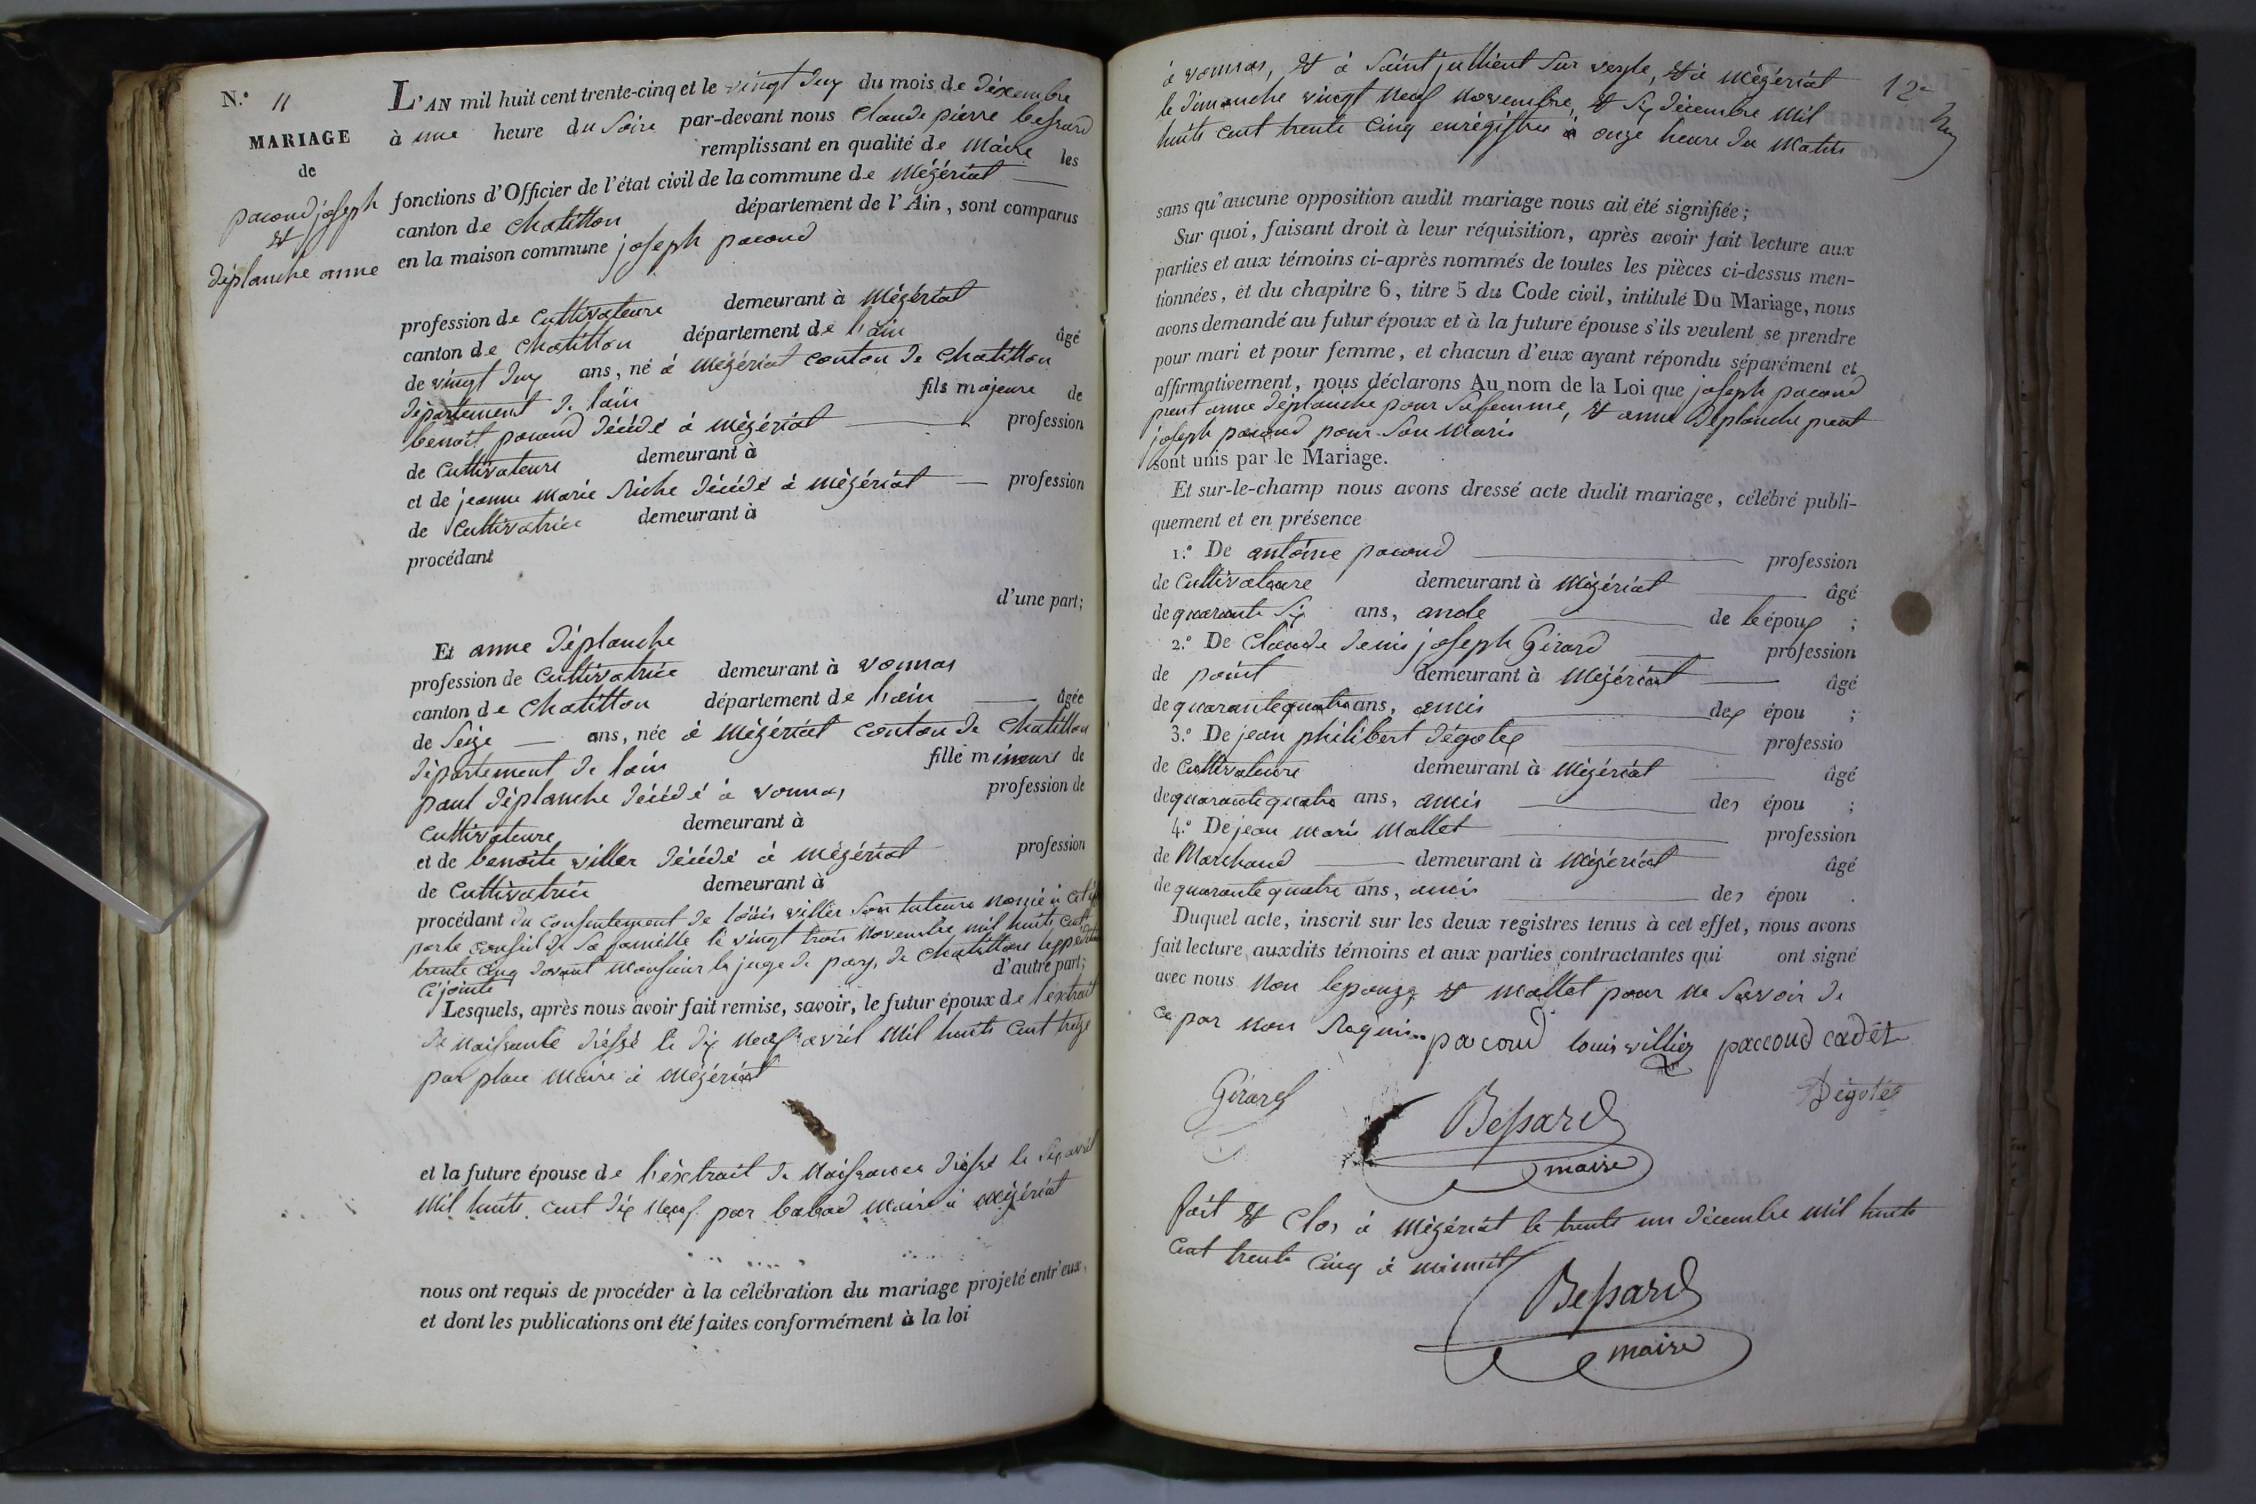 N.° 11
MARIAGE
de
pacoud joseph
&
déplanche anne
L'AN mil huit cent trente-cinq et le vingt deux du mois de déxembre
à une heure du Soire par-devant nous Claude pierre bessard
remplissant en qualité de Maire les
fonctions d'Officier de l'état civil de la commune de Mézériat
canton de Chatillon département de l'Ain, sont comparus
en la maison commune joseph pacoud
profession de Cultivateure demeurant à Mézériat
canton de Chatillon département de l'ain âgé
de vingt deux ans, né à Mézériat canton de Chatillon
département de l'ain fils majeure de
benoit pacoud décédé à Mézériat profession
de Cultivateure demeurant à
et de jeanne marie Riche décédé à mézériat profession
de Cultivatrice demeurant à
procédant
d'une part;
Et anne déplanche
profession de Cultivatrice demeurant à vonnas
canton de Chatillon département de l'ain âgée
de Seize ans, née à Mézériat canton de Chatillon
département de l'ain fille mineure de
paul déplanche décédé à vonnas profession de
Cultivateure demeurant à
et de benoite villier décédé à mézériat profession
de Cultivatrice demeurant à
procédant du Consentement de loüis villier Son tuteure nomé à cet
par le conseil de Sa famille le vingt trois Novembre mil huits cent
trente cinq devant Monsieur le juge de paix de Chatillon
ci jointe d'autre part;
Lesquels, après nous avoir fait remise, savoir, le futur époux de l'éxtrait
de Naissance dréssé le dix Neuf avril Mil huits Cent treize
par place Maire à Mézériat
et la future épouse de l'éxtrait de Naissance dréssé le Six avril
Mil huits cent dix Neuf par babad Maire à mézériat
nous ont requis de procéder à la célébration du mariage projeté entr'eux,
et dont les publications ont été faites conformément à la loi
12e
à vonnas, & à Saint jullient Sur veyle, & à Mézériat
le dimanche vingt Neuf Novembre, & Six décembre Mil
huits cent trente Cinq enrégistrée à onze heure du Matin
sans qu'aucune opposition audit mariage nous ait été signifiée;
Sur quoi, faisant droit à leur réquisition, après avoir fait lecture aux
parties et aux témoins ci-après nommés de toutes les pièces ci-dessus men-
tionnées, et du chapitre 6, titre 5 du Code civil, intitulé Du Mariage, nous
avons demandé au futur époux et à la future épouse s'ils veulent se prendre
pour mari et pour femme, et chacun d'eux ayant répondu séparément et
affirmativement, nous déclarons Au nom de la Loi que joseph pacoud
prent anne déplanche pour Safemme, & anne Déplanche prent
joseph pacoud pour Son Maris
sont unis par le Mariage.
Et sur-le-champ nous avons dressé acte dudit mariage, célébré publi-
quement et en présence
1.° De antoine pacoud profession
de Cultivateure demeurant à Mézériat âgé
de quarante Six ans, oncle de l'époux ;
2.° De Claude denis joseph Girard profession
de point demeurant à Mézériat âgé
de quarante quatre ans, amis dex épou ;
3.° De jean philibert dégolex professio
de Cultivateure demeurant à Mézériat âgé
de quarante quatre ans, amis des épou ;
4.° De jean Marie Mallet profession
de Marchand demeurant à Mézériat âgé
de quarante quatre ans, amis des épou .
Duquel acte, inscrit sur les deux registres tenus à cet effet, nous avons
fait lecture auxdits témoins et aux parties contractantes qui ont signé
avec nous Non lepouze & Mallet pour Ne Savoir de
ce par Nous Requis.. pacoud louis villier paccoud cadêt
Girard Dégolex
Bessard
maire
fait & Clos à Mézériat le trente un décembre Mil huits
cent trente Cinq à minuit
Bessard
maire